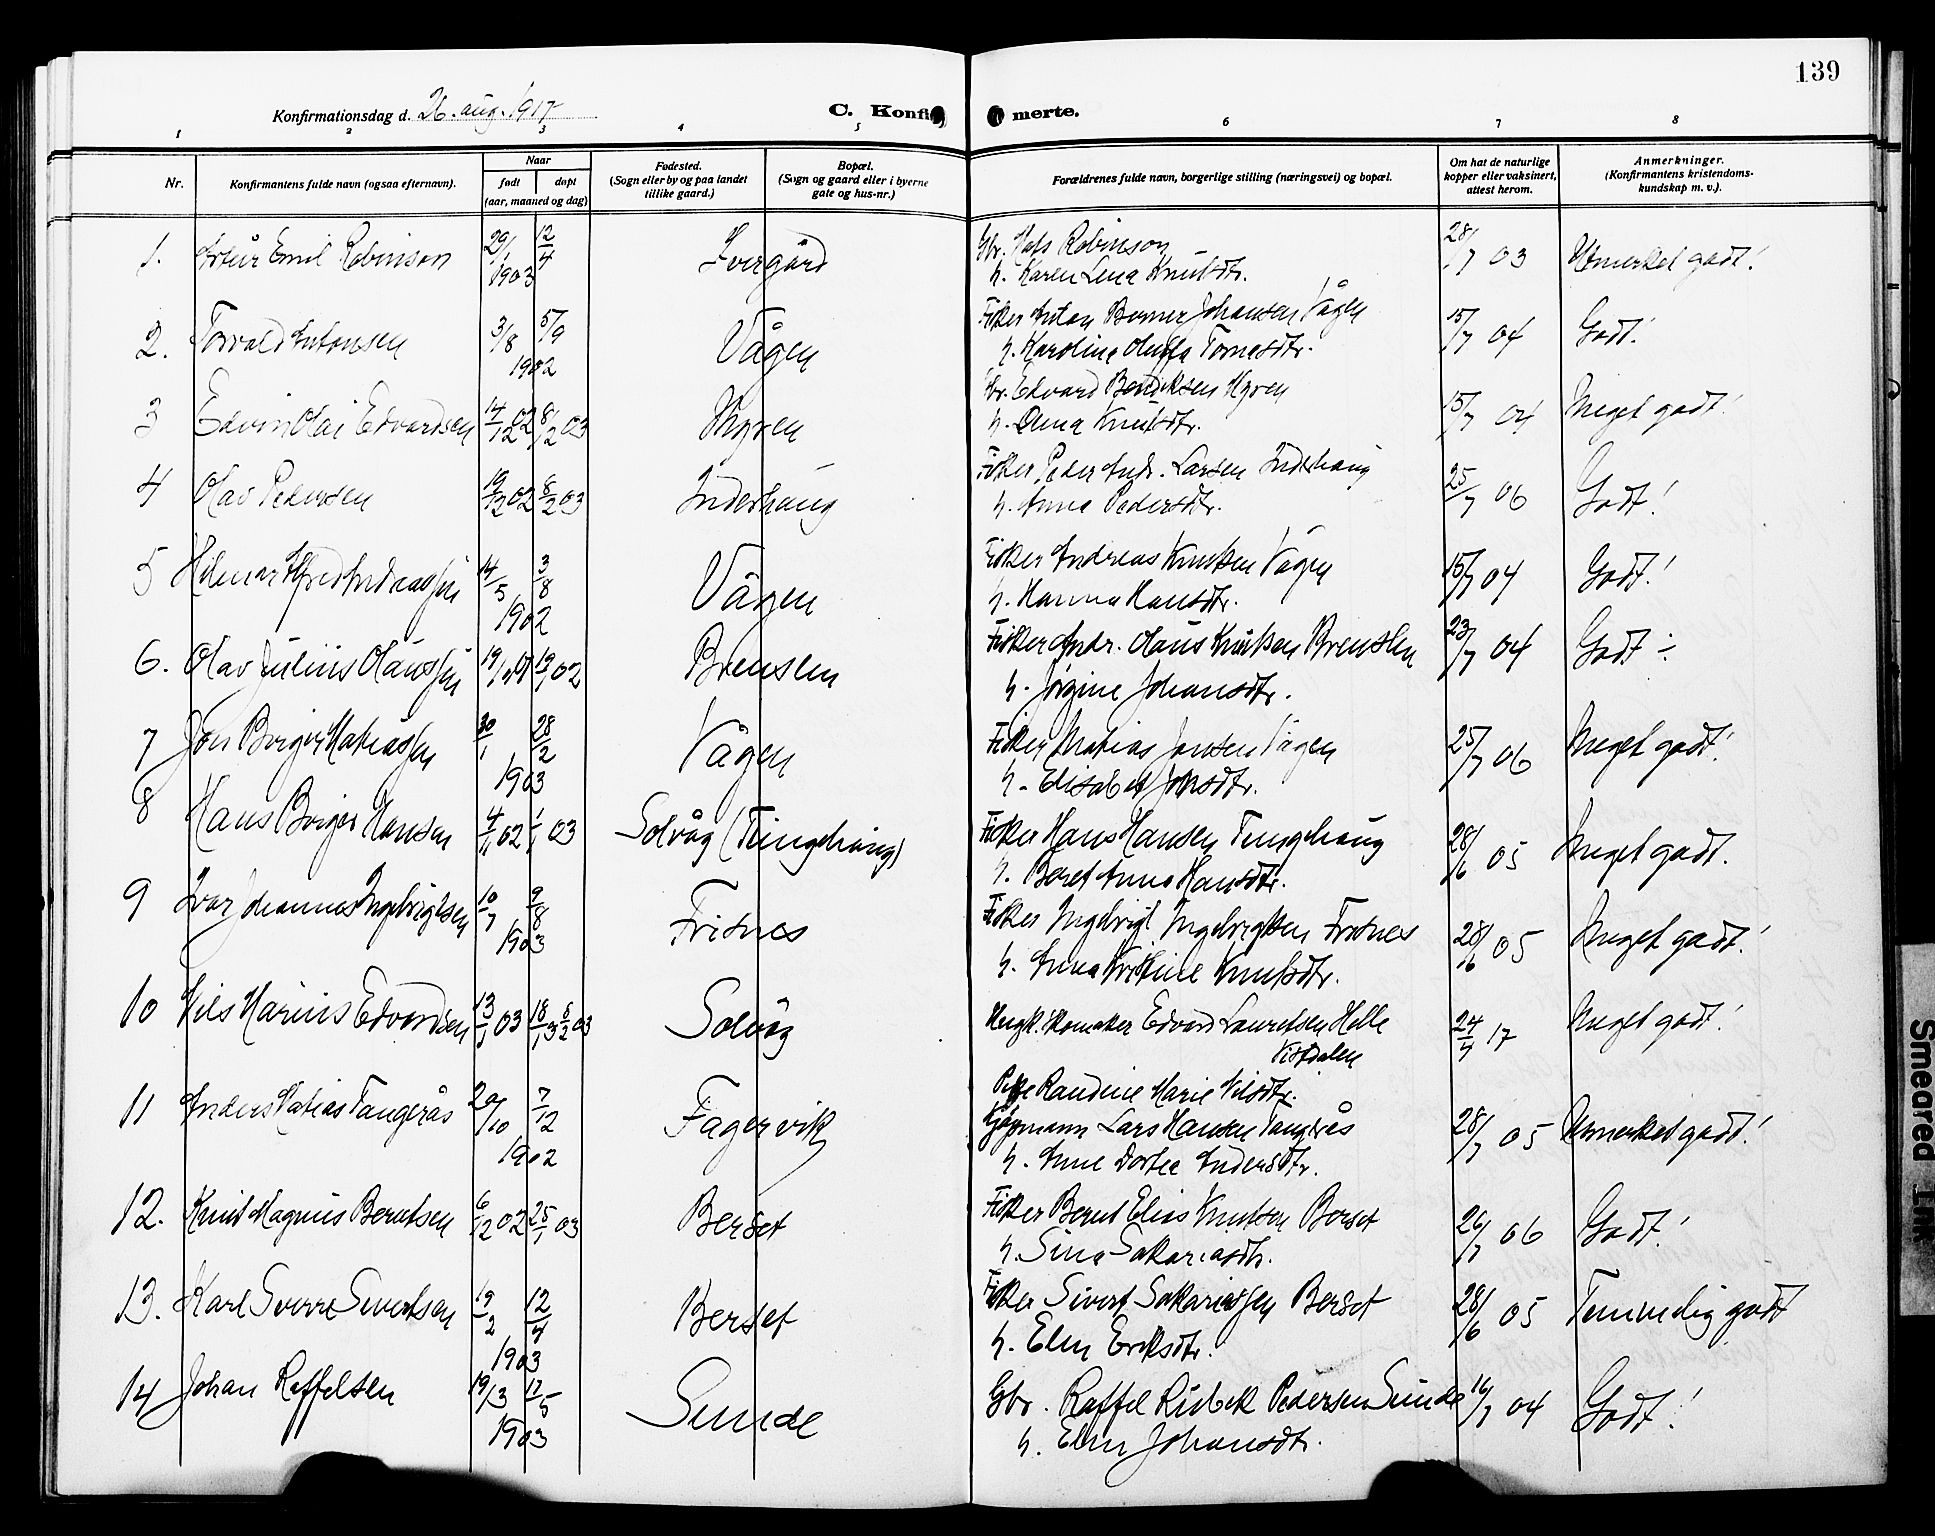 139
Konfirmationsdag d. 26. aug. 1917
C. Konfi merte.
1 2 3 4 5 6 7 8
Nr.
Konfirmantens fulde navn (ogsaa efternavn).
Naar
født døpt
(aar, maaned og dag)
Fødested.
(Sogn eller by og paa landet
tillike gaard.)
Bopæl.
(Sogn og gaard eller i byerne
gate og hus-nr.)
Forældrenes fulde navn, borgerlige stilling (næringsvei) og bopæl.
Om hat de naturlige
kopper eller vaksinert,
attest herom.
Anmerkninger.
(Konfirmantens kristendoms-
kundskap m. v.).
1. Artur Emil Robinson 29/1 12/4 1903 Ivergård Gbr. Robinson 28/7 03 Utmerket godt!
h. Karen Lena Knutsdtr.
2. Torvald Antonsen 3/8 5/9 1902 Vågen Fisker Anton Berner Johansen Vågen 15/7 04 Godt!
h. Karoline Oluffa Tomasdtr.
3 Edvin Olai Edvardsen 14/12 02 8/2 03 Myren Gbr. Edvard Bendiksen Myren 15/7 04 Meget godt!
h. Anna Knutsdtr.
4 Olav Pedersen 19/12 02 8/2 03 Inderhaug Fisker Peder Andr. Larsen Inderhaug 25/7 06 Godt!
h. Anna Pedersdtr.
5 Hilmar Alfred Andreassen 14/5 3/8 1902 Vågen Fisker Andreas Knutsen Vågen 15/7 04 Godt!
h. Hanna Hansdtr.
6. Olav Julius Olaussen 19/1 02 Brensen Fisker Andr. Olaus Knutsen Brensen 23/7 04 Godt ÷
h. Jørgine Johansdtr.
7 Jon Birger Matiassen 30/1 28/2 1903 Vågen Fisker Matias Jonsen Vågen 25/7 06 Meget godt!
h. Elisabet Jonsdtr.
8 Hans Birger Hansen 4/11 02 1/1 03 Solvåg (Tinghaug) Fisker Hans Hansen Tinghaug 28/6 05 Meget godt.
h. Beret Anna Hansdtr.
9 Ivar Johannes Ingebrigtsen 10/7 9/8 1903 Fritnes Fisker Ingebrigt Ingebrigtsen Fritnes 28/6 05 Meget godt!
h. Anna Kristine Knutsdtr.
10 Nils Marius Edvardsen 13/1 03 18/1 3 8/2 03 Solvåg Ungk. skomaker Edvard Lauritsen Helle 24/4 17 Meget godt!
Vistdalen
Pike Randine Marie Nilsdtr.
11 Anders Matias Tangerås 20/10 7/12 1902 Fagervik Kjøpmann Lars Hansen Tangerås 28/7 05 Utmerket godt!
h. Anne Dortea Andersdtr.
12. Knut Magnus Berntsen 6/12 02 25/1 03 Berset Fisker Bernt Elias Knutsen Berset 26/7 06 Godt!
h. Sina Sakariasdtr.
13. Karl Sverre Sivertsen 19/2 12/4 1903 Berset Fisker Sivert Sakariassen Berset 28/6 05 Temmelig godt
h. Elen Eriksdtr.
14 Johan Raffelsen 19/3 17/5 1903 Sunde Gbr. Raffel Rubek Pedersen Sunde 16/7 04 Godt!
h. Elen Johansdtr.
Smeared Ink